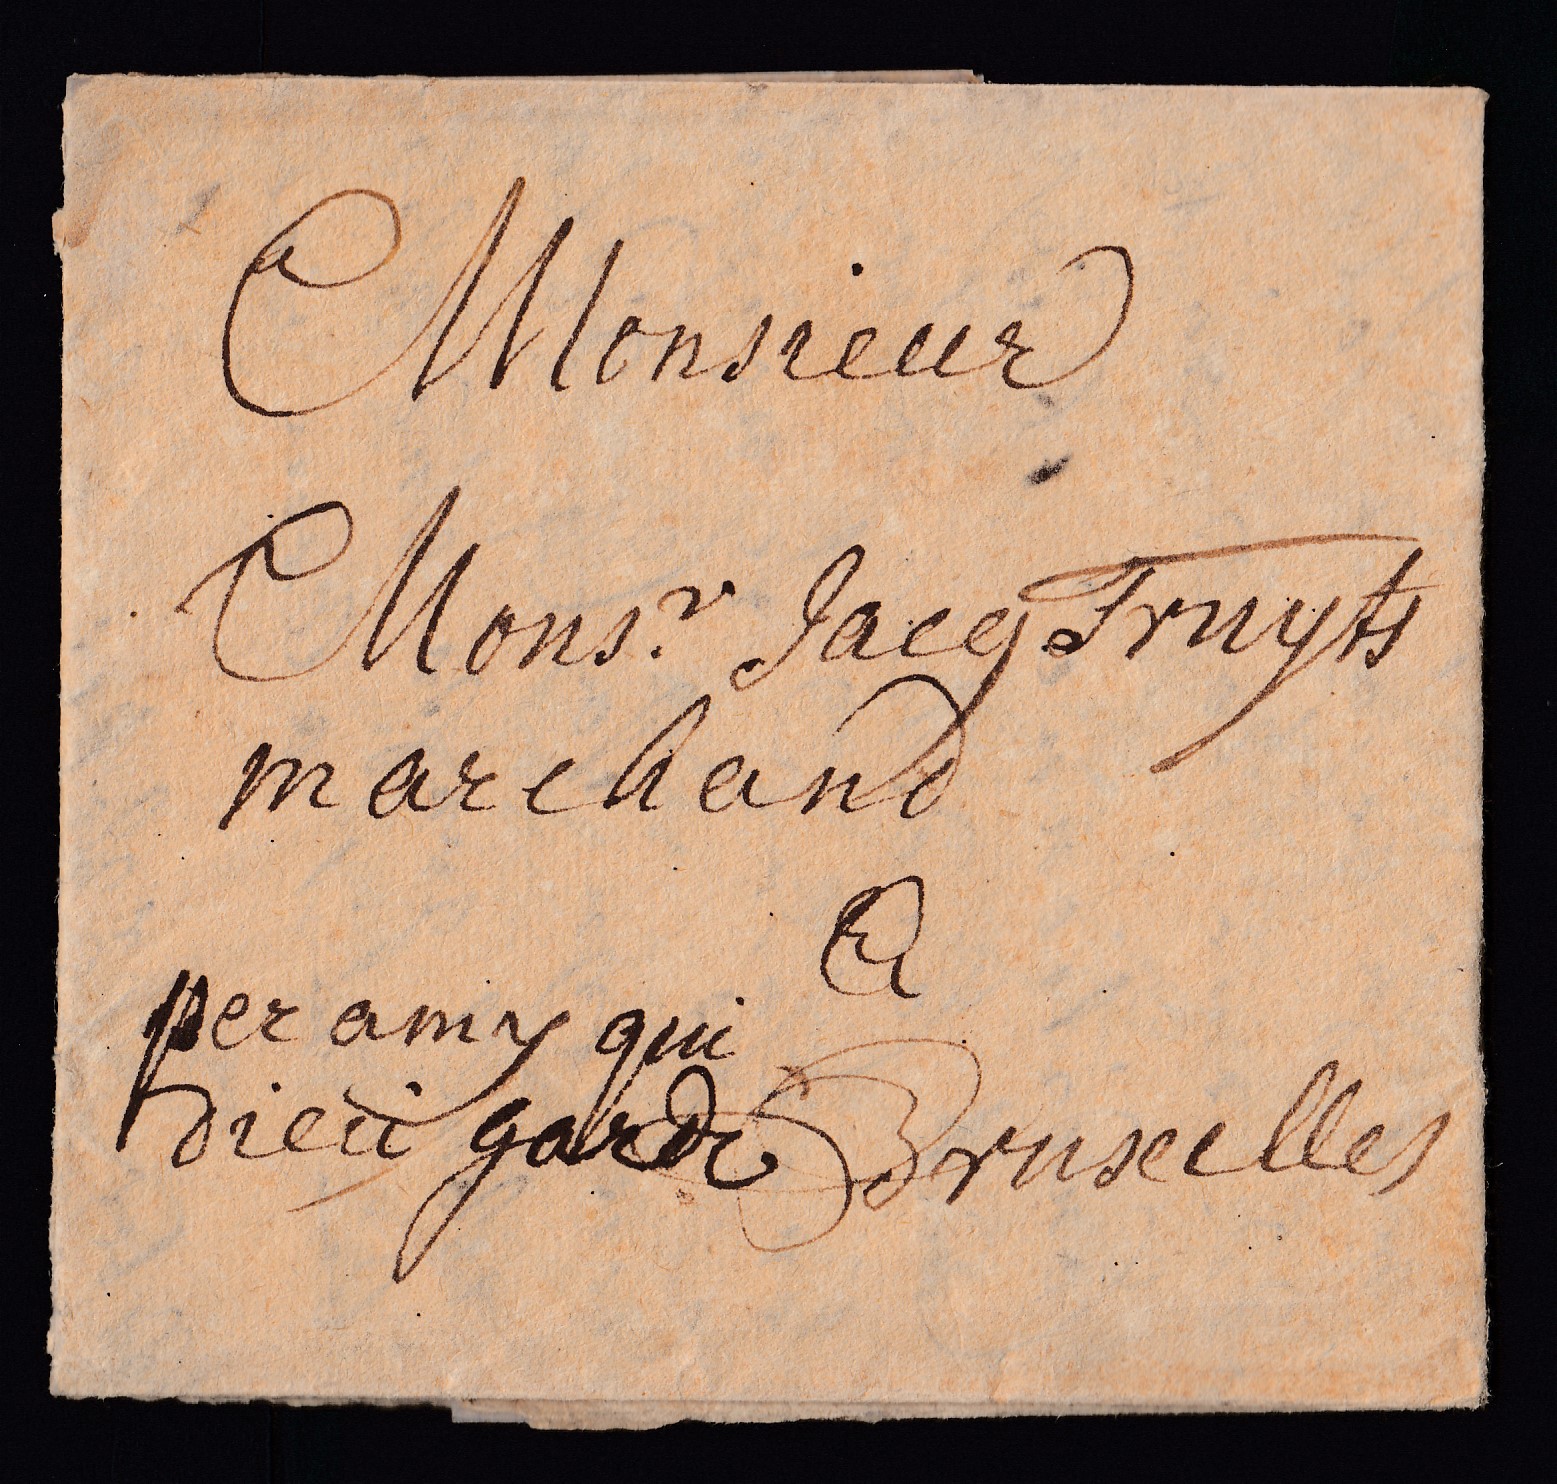 Monsieur
Monsr. Jacq Fruyts
marchand
A
per amy qui
dieu garde Bruxelles